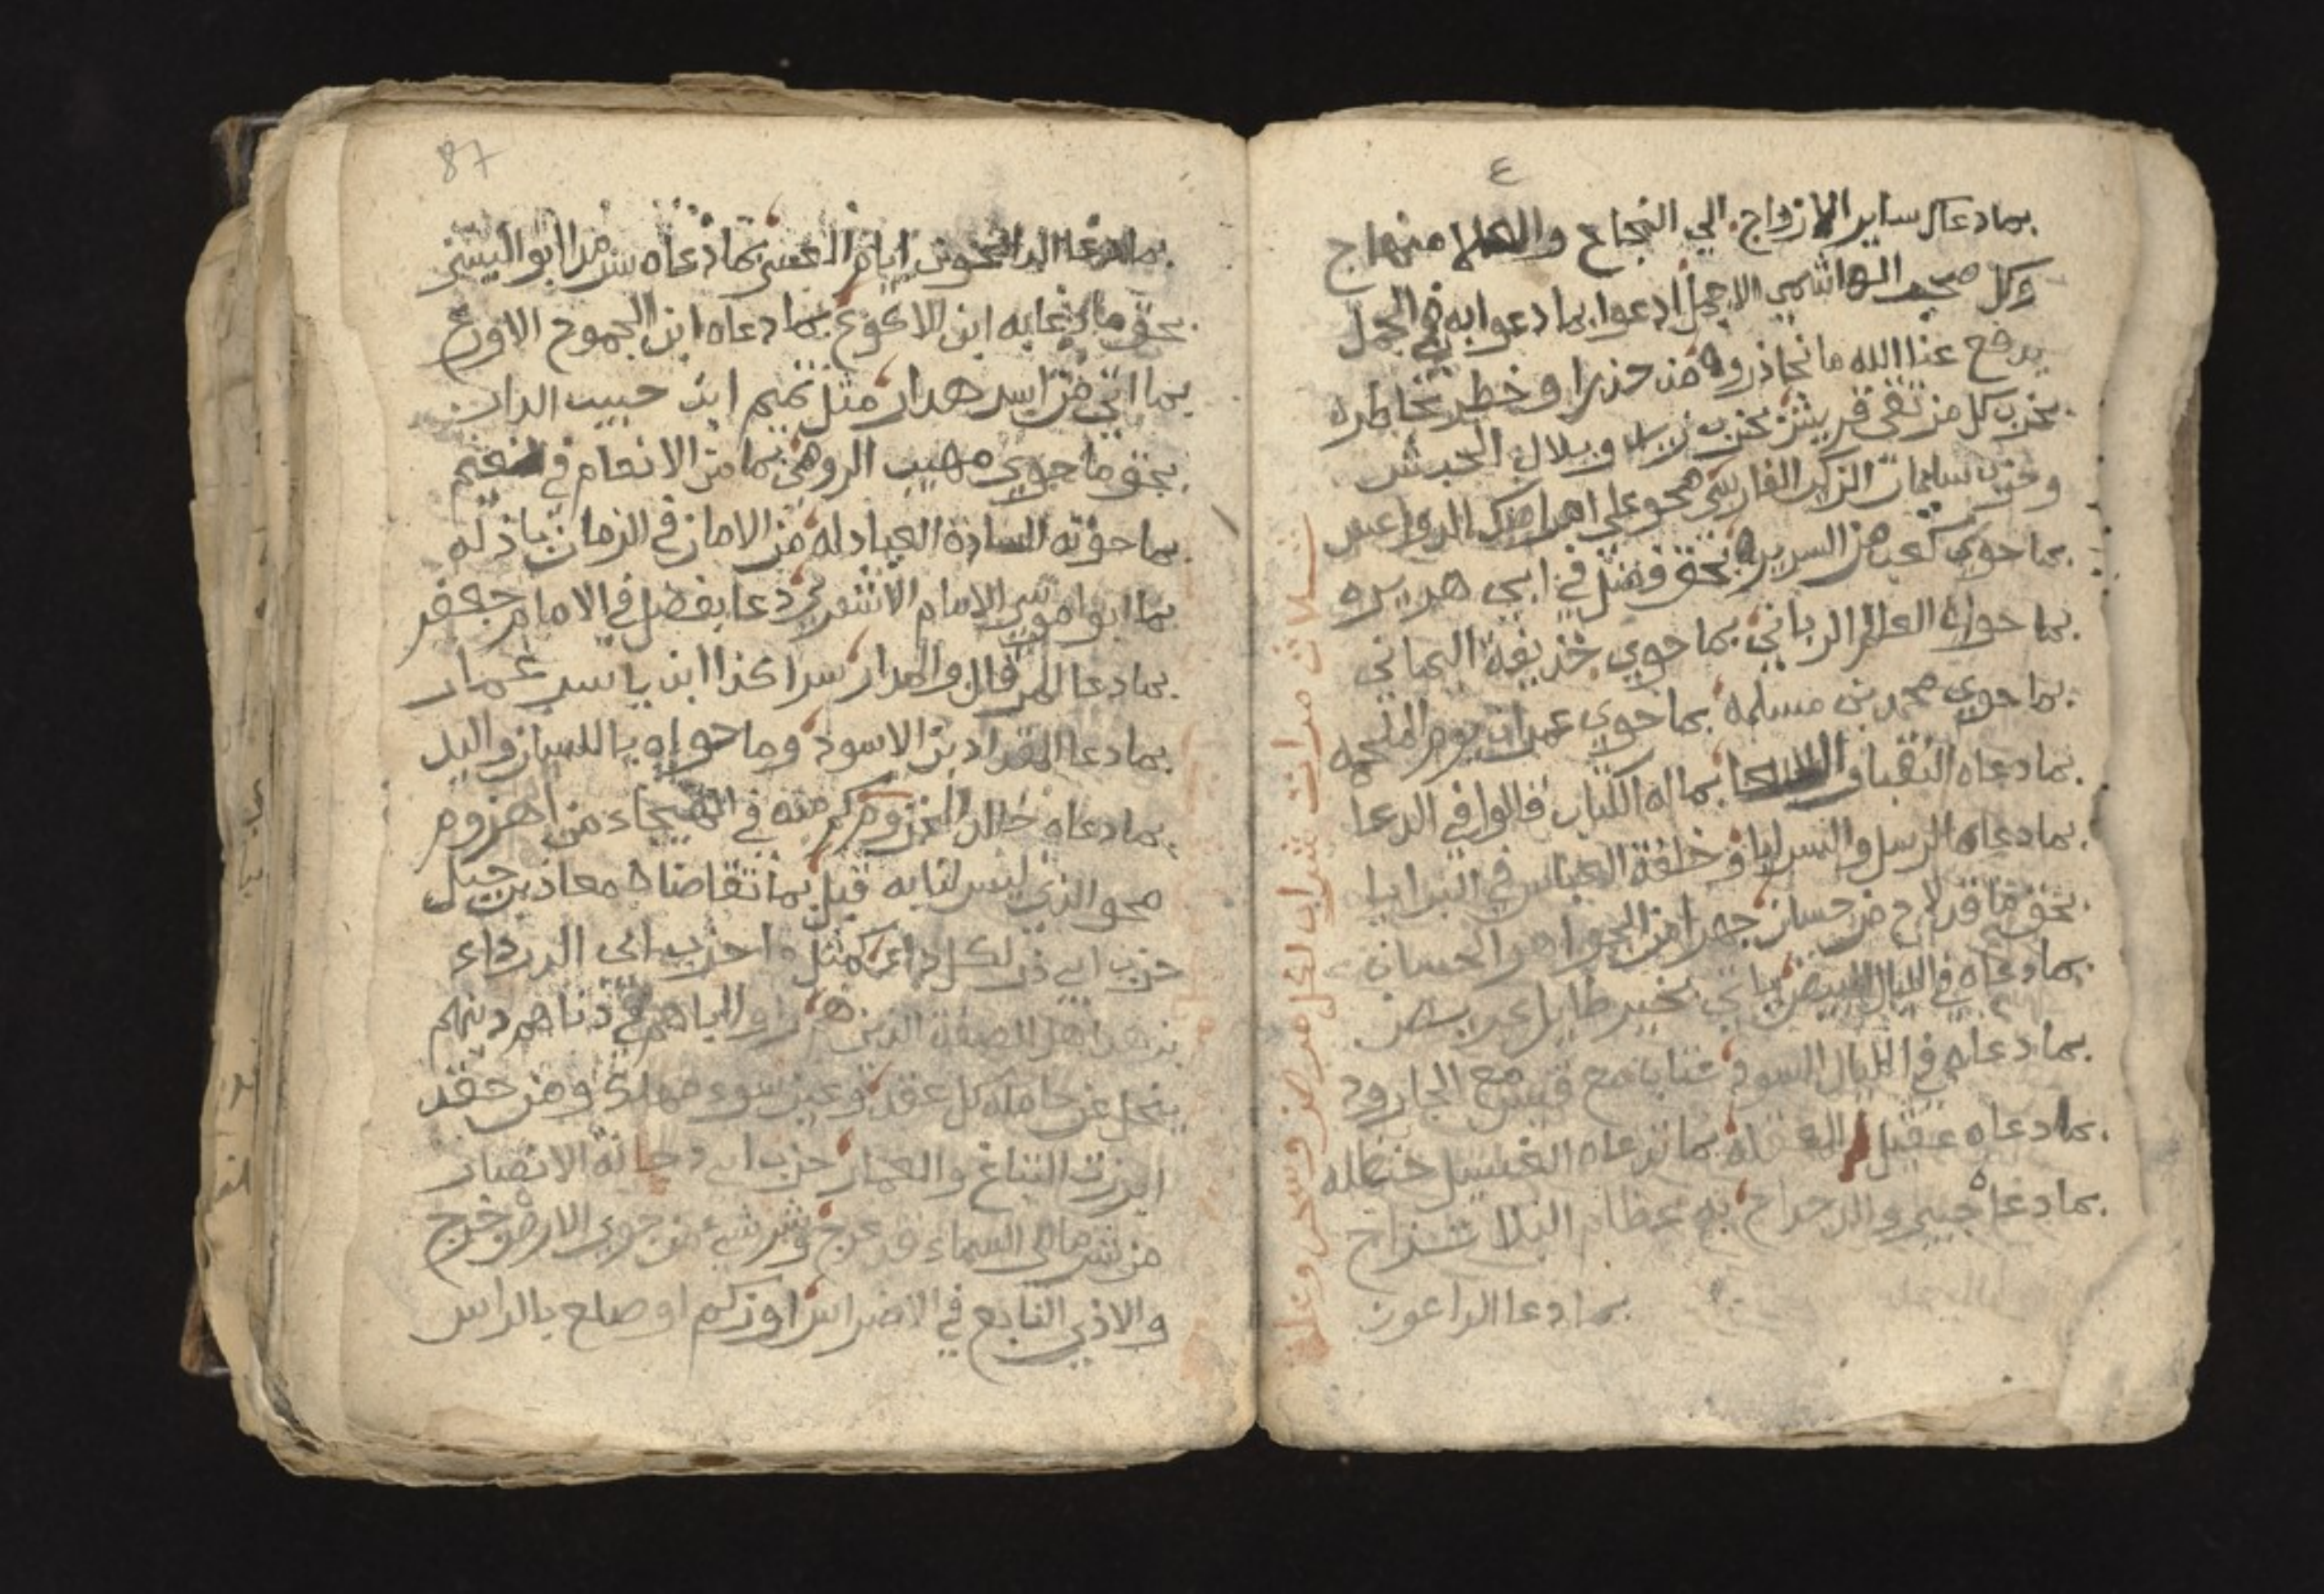 ٤
بمادعا سايرالازواج الي النجاح والعلا منهاج
وكل صحب الهاشمي الاجمل ادعوا بما دعوا به في الجمل
يدفع عنا الله ما نحاذروه من حذر او خطر نخاطره
بحزب كل من تقي قريش بحزب زيد وبلال الحبش
وحزب سلمان الزكي الفارسي محو علي الدواعس
بما حوي كعب من السريره بحق فضل في ابي هريره
بما حواه العالم الرباني بما حوي حذيفة اليماني
بما حوي محمد بن مسلمه بما حوي عمران يوم الملحمه
بما دعاه النقبا و بما اله الكتاب قالوا في الدعا
بما دعاه الرسل والسرايا وخلفة العباس في البرايا
بحق ما قد لاح من حسان جهرا من الجواهر الحسان
بما دعاه في الليال البيض ياتي بخير طايل عريض
بما دعاه في الليال السود عتاب مع قيس مع الجارود
بما دعاه عقيل بما دعاه الغسيل حنظله
بما دعاه جبير والدحداح به عظام البلا تنزاح
بما دعا الداعون
ثلاث مرات شراب لكل مرض وسحر وعله
87
بما دعا الداعون ايام العسر بما دعاه ابو اليسر
بحق ما دعا به ابن الاكوع بما دعاه ابن الجموح الاورع
بما اتي من اسد هدار مثل تميم ابن حبيب الدار
بحق ما حوي صهيب الرومي بما من الانعام في
بما حوته السادة العبادله من الامان في الزمان باذله
بما ابوا موسي الامام الاشعري دعا بفضل في الامام جعفر
بما دعا المرقال والمدار سرا كذا ابن ياسر عمار
بما دعا المقداد بن الاسود وما حواه باللسان واليد
بما دعاه خالد المخزوم كم منه في الهيجاء من مهزوم
محو الذي ليس لنا به قبل بما تقاضاه معاذ بن جبل
حزب ابي ذر لكل داء كمثل احزب ابي الدرداء
بزهد اهل الصفة الذين هم او الباهم في دناهم دينهم
ينحل عن حامله كل عقد وعين سوء مهلك ومن حقد
الزرق التباع والعمار حزب ابي دجانة الانصار
من شر ما الي السماء قد عرج وشر شيء من جوي الارض خرج
والاذي التابع في الاضراس او زكم او صلع بالراس